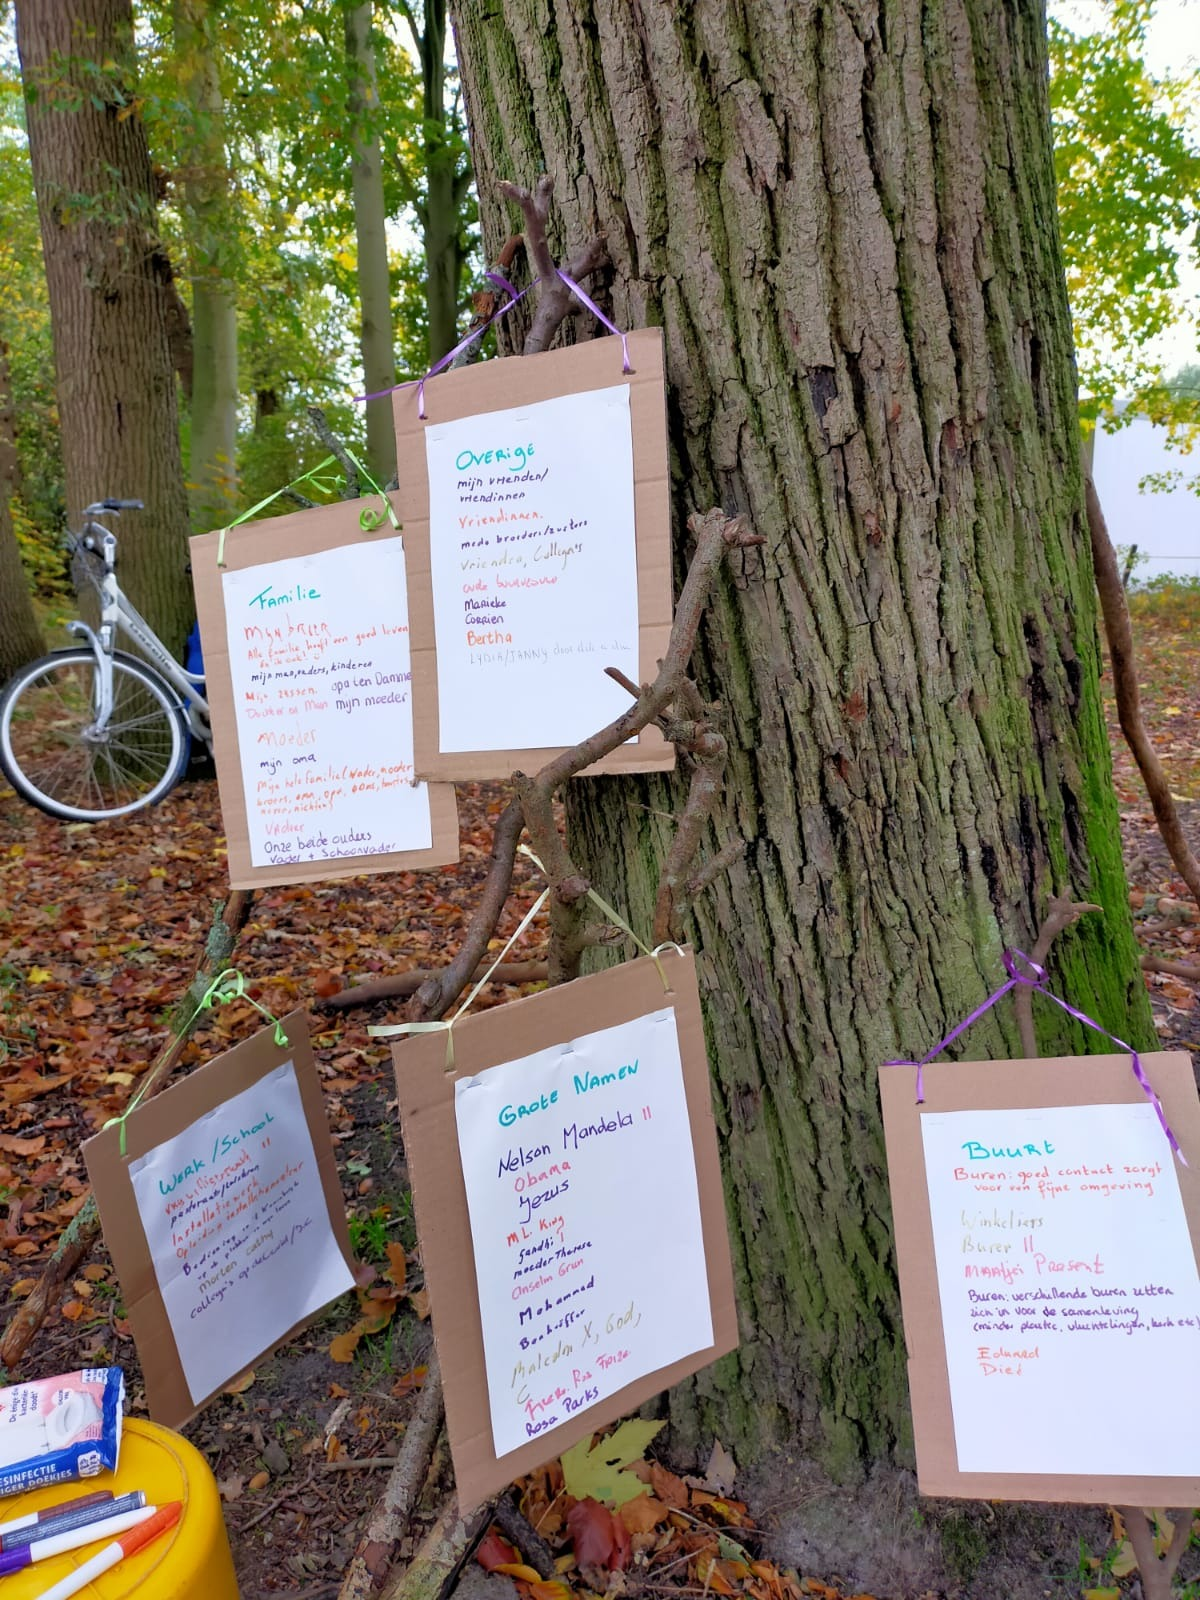 OVERIGE
mijn vrienden/
vriendinnen
Vriendinnen.
mede broeders/zusters
Vrienden, Collega's
oude buurvrouw
Marieke
Corrien
Bertha
LYDIA/JANNY door dik en dun
Familie
Mijn broer
Alle familie heeft een goed leven
mijn man, ouders, kinderen
Mijn zussen. opa ten Damme
Dochter en Man mijn moeder
Moeder
mijn oma
Mijn hele familie (vader, moeder
broers, oma, opa, ooms, tantes
neven, nichten)
Vader
Onze beide ouders
Vader + Schoonvader
Werk/School
pastoraat/
Installatiewerk
Opleiding installatiewerker
Morten Cathy
Collega's op de
GROTE NAMEN
Nelson Mandela II
Obama
Jezus
M L. King
Gandhi I
moeder Therese
Anselm Grun
Mohammed
Bonhoffer
Malcolm X, God,
Rosa Parks
BUURT
Buren: goed contact zorgt
voor een fijne omgeving
Winkeliers
Buren II
Maatjes Present
Buren: verschillende buren zetten
zich in voor de samenleving
(minder plastic, vluchtelingen, kerk etc)
Eduard
De enige die
bacteriën
doodt!
DESINFECTIE
REINIGER DOEKJES